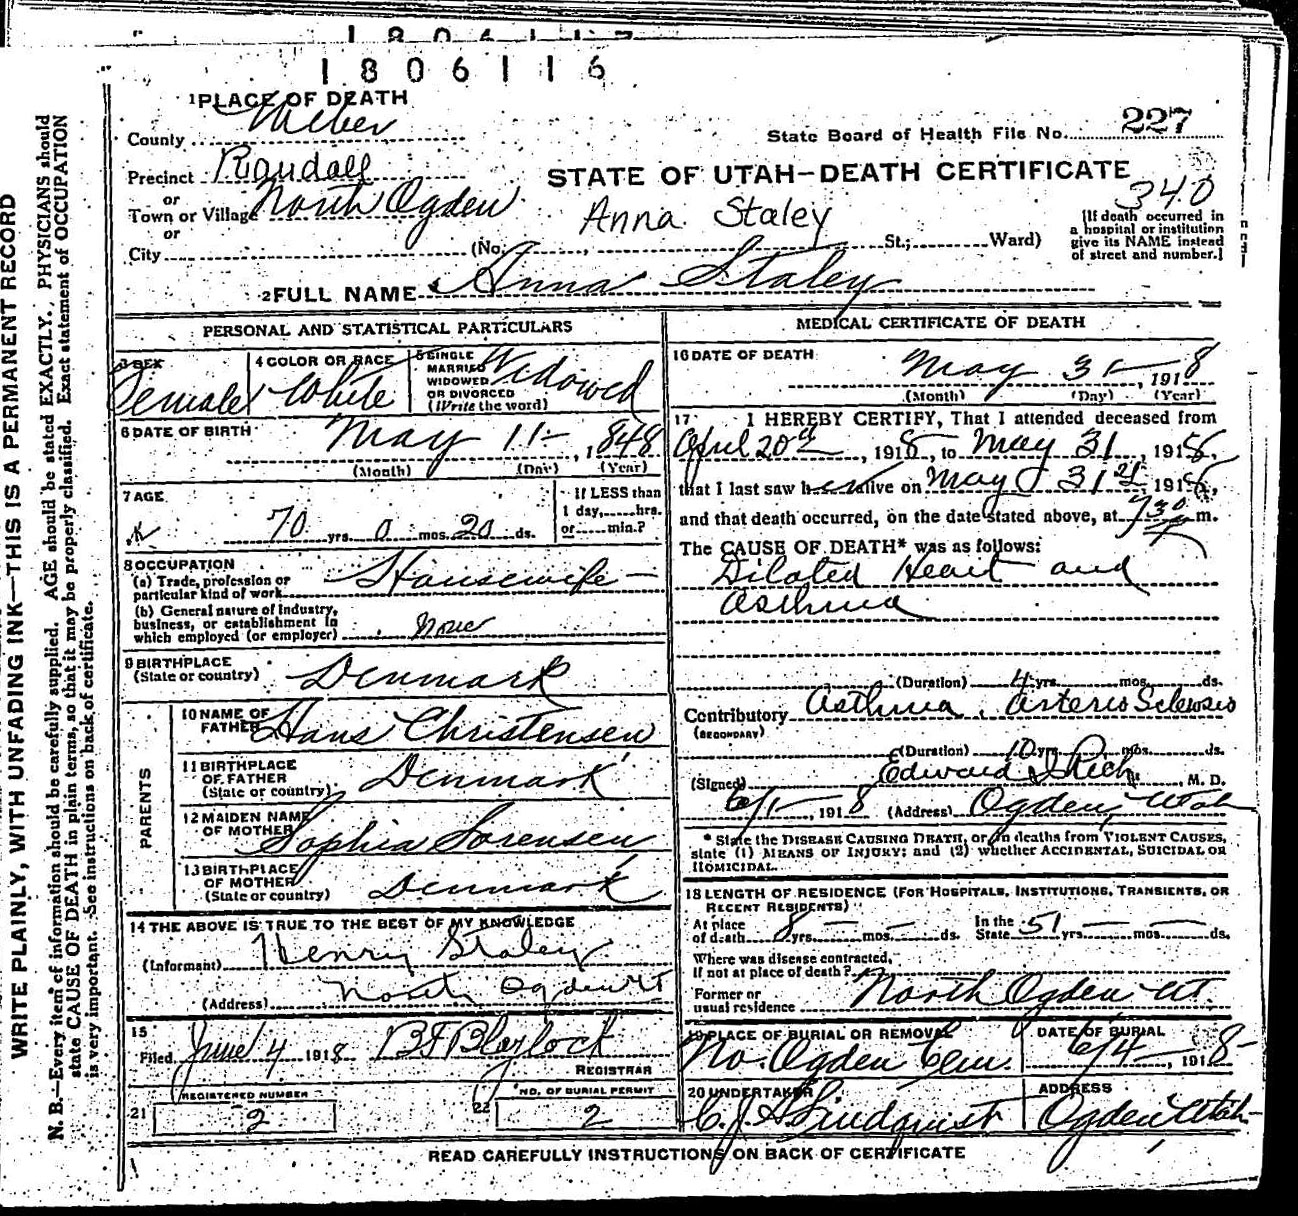 1806116
1 PLACE OF DEATH
County Weber
State Board of Health File No. 227
Precinct Randall
STATE OF UTAH—DEATH CERTIFICATE
340
or
Town or Village North Ogden
Anna Staley
or
City (No. , St.; Ward)
[If death occurred in
a hospital or institution
give its NAME instead
of street and number.]
2 FULL NAME Anna Staley
PERSONAL AND STATISTICAL PARTICULARS
3 SEX Female
4 COLOR OR RACE White
5 SINGLE
MARRIED
WIDOWED
OR DIVORCED
(Write the word)
Widowed
6 DATE OF BIRTH May 11- , 1848
(Month) (Day) (Year)
7 AGE
70 yrs. 0 mos. 20 ds.
If LESS than
1 day, hrs.
or min.?
8 OCCUPATION
(a) Trade, profession or
particular kind of work Housewife
(b) General nature of industry,
business, or establishment in
which employed (or employer) none
9 BIRTHPLACE
(State or country) Denmark
PARENTS
10 NAME OF
FATHER Hans Christensen
11 BIRTHPLACE
OF FATHER
(State or country) Denmark
12 MAIDEN NAME
OF MOTHER Sophia Sorensen
13 BIRTHPLACE
OF MOTHER
(State or country) Denmark
14 THE ABOVE IS TRUE TO THE BEST OF MY KNOWLEDGE
(Informant) Henry Staley
(Address) North Ogden Ut
15
Filed June 4 1918 B F Blaylock
REGISTRAR
21 REGISTERED NUMBER 2
22 NO. OF BURIAL PERMIT 2
MEDICAL CERTIFICATE OF DEATH
16 DATE OF DEATH
May 31 , 1918
(Month) (Day) (Year)
17 I HEREBY CERTIFY, That I attended deceased from
April 20 , 1918, to May 31 , 1918,
that I last saw her alive on May 31st, 1918,
and that death occurred, on the date stated above, at 730 m.
The CAUSE OF DEATH* was as follows:
Dilated Heart and
Asthma
(Duration) 4 yrs. mos. ds.
Contributory Asthma, Arterio Sclerosis
(SECONDARY)
(Duration) 10 yrs. mos. ds.
(Signed) Edward I Rich, M. D.
6/1-, 1918 (Address) Ogden, Utah
* State the DISEASE CAUSING DEATH, or, in deaths from VIOLENT CAUSES,
state (1) MEANS OF INJURY; and (2) whether ACCIDENTAL, SUICIDAL OR
HOMICIDAL.
18 LENGTH OF RESIDENCE (FOR HOSPITALS, INSTITUTIONS, TRANSIENTS, OR
RECENT RESIDENTS)
At place
of death 8 yrs. mos. ds.
In the
State 51 yrs. mos. ds.
Where was disease contracted,
if not at place of death?
Former or
usual residence North Ogden Ut.
19 PLACE OF BURIAL OR REMOVAL
No. Ogden Cem.
DATE OF BURIAL
6/4 , 1918-
20 UNDERTAKER
C. J. A. Lindquist
ADDRESS
Ogden Utah
READ CAREFULLY INSTRUCTIONS ON BACK OF CERTIFICATE
WRITE PLAINLY, WITH UNFADING INK—THIS IS A PERMANENT RECORD
N. B.—Every item of information should be carefully supplied. AGE should be stated EXACTLY. PHYSICIANS should
state CAUSE OF DEATH in plain terms, so that it may be properly classified. Exact statement of OCCUPATION
is very important. See instructions on back of certificate.